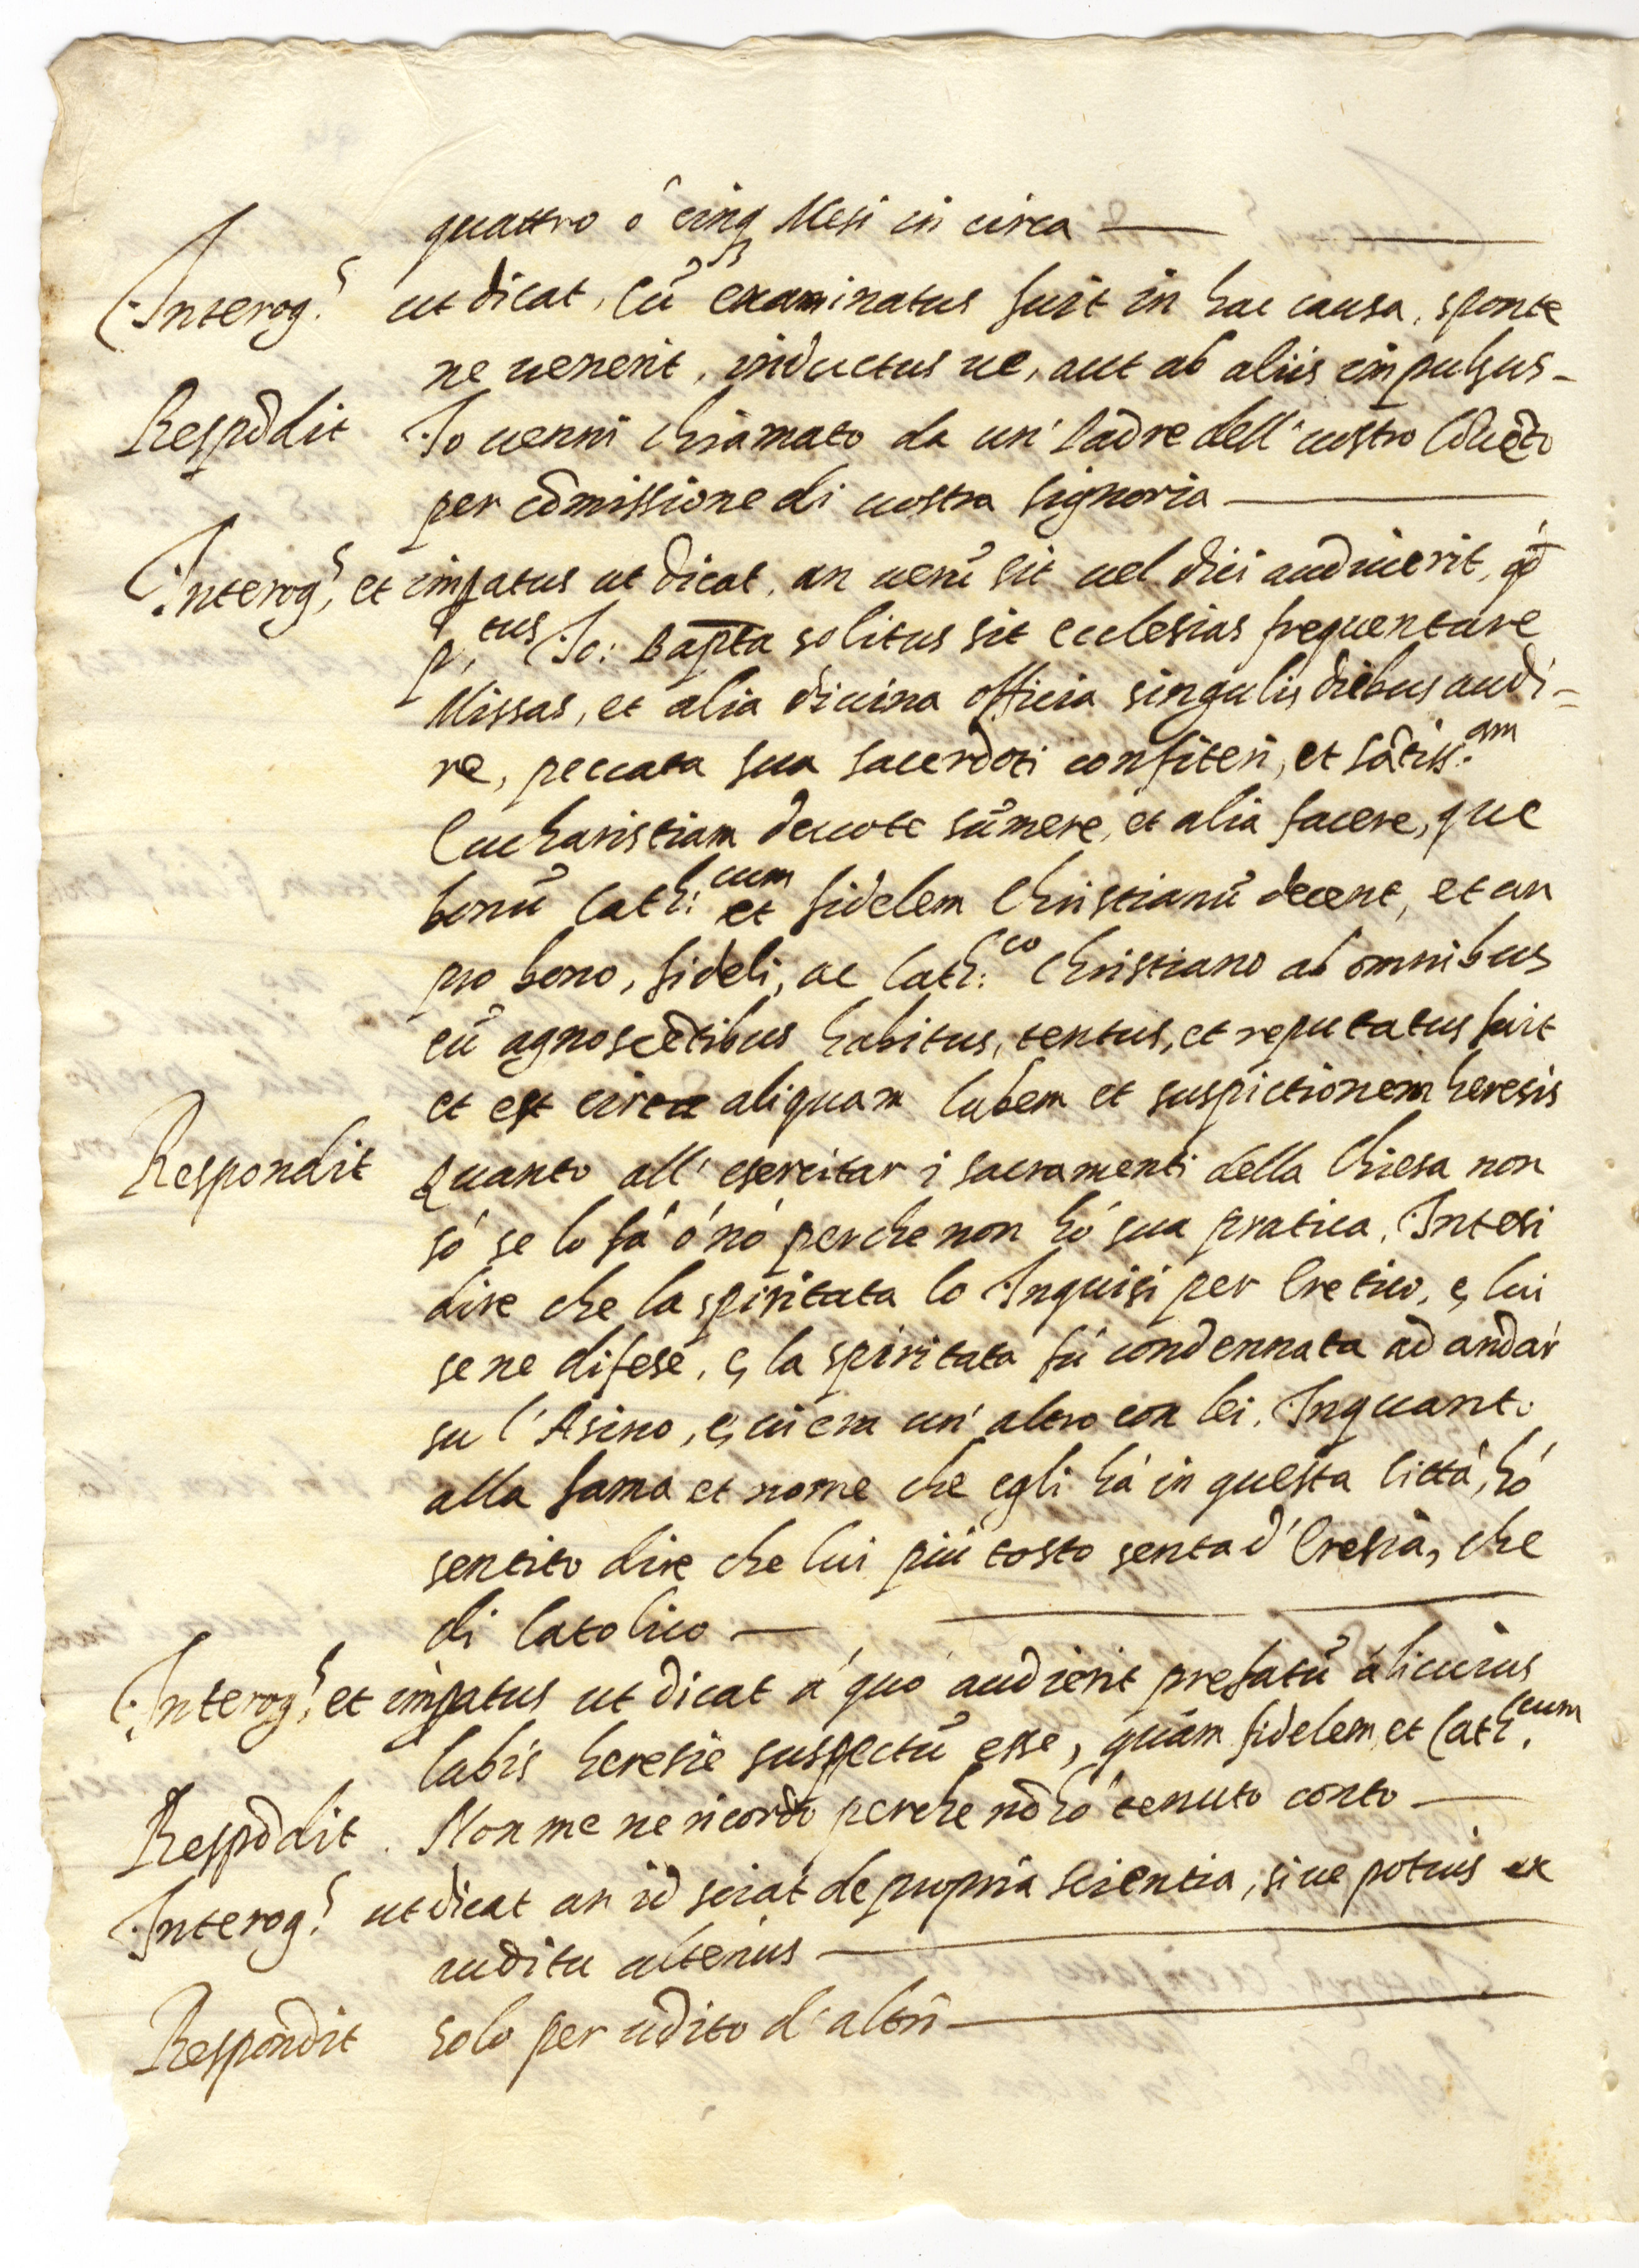 quattro ô cinqꝫ Mesi in circa
Interog.s ut dicat, Cū examinatus fuit in hac causa, sponte
ne uenerit, inductus ue, aut ab aliis impulsus-
Respōdit Io uenni chiamato da un' Padre dell' uostro Cōuēto
per cōmissione di uostra signoria
Interog.s et impatus ut dicat, an uerū sit uel dici audiuerit, qd
p.tus Io: Bapta solitus sit ecclesias frequentare
Missas, et alia diuina officia singulis diebus audi=
re, peccata sua sacerdoti confiteri, et sātiss.am
Eucharistiam deuote sūmere, et alia facere, que
bonū Cath.cum et fidelem Christianū decent, et an
pro bono, fideli, ac Cath.co Christiano ab omnibus
eū agnoscētibus habitus, tentus, et reputatus fuit
et est circa aliquam labem et suspictionem heresis
Respondit Quanto all' esercitar i sacramenti della Chiesa non
só se lo fá ó nó perche non hó sua pratica, Intesi
dire che la spiritata lo Inquisi per Eretico, e, lui
se ne difese, e, la spiritata fú condennata ad andar
su l' Asino, e, ui era un' altro con lei, Inquanto
alla fama et nome che egli há in questa Cittá, hó
sentito dire che lui piú tosto senta d' Eresia, che
di Catolico
Interog.s et impatus ut dicat á quo audierit prefatū alicuius
labis heresie suspectū esse, quám fidelem et Cath.cum
Respōdit. Non me ne ricordo perche nō hó tenuto conto
Interog.s ut dicat an id sciat de propria scientia, siue potius ex
auditu alterius
Respondit solo per udito d' altri